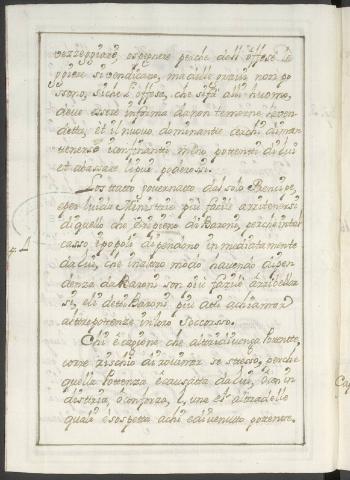 vezzeggiare, o spegnere perche dell'offese leg
giere si vendicano, ma delle gravi non po
ssono, siche l'offesa, che si fà all'huomo,
deve essere in forma da non temerne la ven
detta, et il nuovo dominante cerchi di man
tenersi i confinanti men potenti di lui
et abassare li più poderosi.
Lo stato governato dal solo Principe,
e per lui da Ministri più facile a
di quello che è ripieno di Baroni, perche in tal
casso i popoli dipendono immediatamente
da lui, che in altro modo havendo dipen
denza da Baroni son più facili a ribellar
si, e li detti Baroni più atti a chiamar
altre potenze in loro soccorso.
Chi è cagione, che altri divenga Potente,
corre rischio di rovinar se stesso, perche
quella Potenza è causata da lui, ò con in
dustria, ò con forza, l'una e l'altra delle
quali è sospetta a chi è divenuto potente.